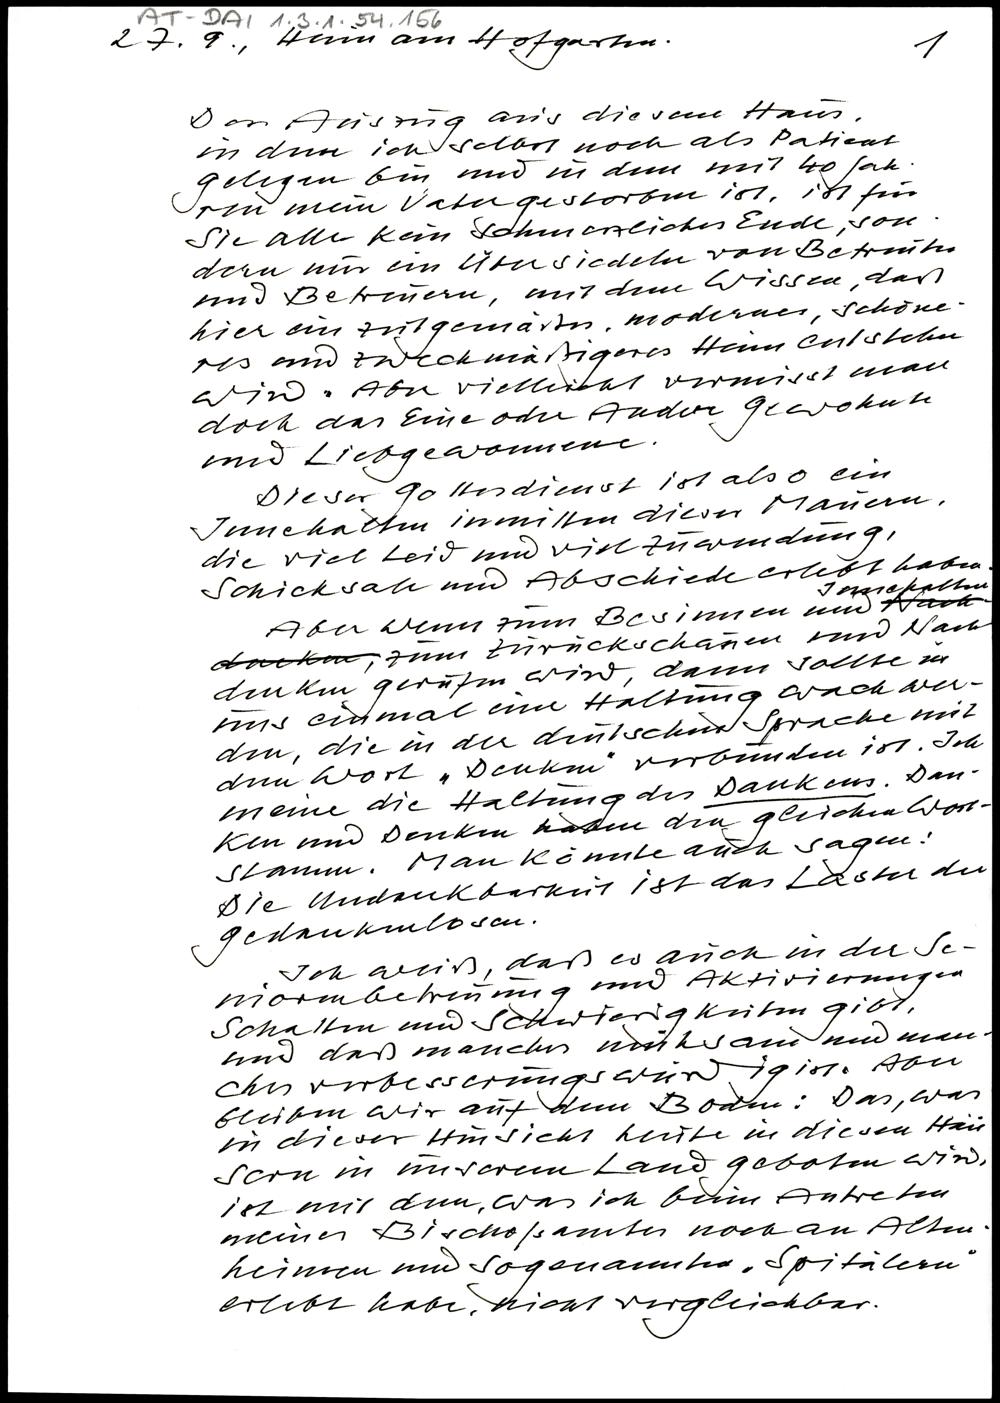 AT-DAI 1.3.1.54.156
27. 9., Heim am Hofgarten.
1
Der Auszug aus diesem Haus,
in dem ich selbst noch als Patient
gelegen bin und in dem mit 40 Jah-
ren mein Vater gestorben ist, ist für
Sie alle kein schmerzliches Ende, son-
dern nur ein Übersiedeln von Betreuten
und Betreuern, mit dem Wissen, daß
hier ein zeitgemäßes, modernes, schöne-
res und zweckmäßigeres Heim entstehen
wird. Aber vielleicht vermisst man
doch das Eine oder Andere Gewohnte
und Liebgewonnene.
Dieser Gottesdienst ist also ein
Innehalten inmitten dieser Mauern,
die viel Leid und viel Zuwendung,
Schicksale und Abschiede erlebt haben.
Innehalten
Aber wenn zum Besinnen und Nach-
denken, zum Zurückschauen und Nach
denken gerufen wird, dann sollte in
uns einmal eine Haltung wach wer-
den, die in der deutschen Sprache mit
dem Wort „Denken" verbunden ist. Ich
meine die Haltung des Dankens. Dan-
ken und Denken haben den gleichen Wort-
stamm. Man könnte auch sagen:
Die Undankbarkeit ist das Laster der
Gedankenlosen.
Ich weiß, daß es auch in der Se-
niorenbetreuung und Aktivierungen
Schatten und Schwierigkeiten gibt,
und daß manches mühsam und man-
ches verbesserungswürdig ist. Aber
bleiben wir auf dem Boden: Das, was
in dieser Hinsicht heute in diesen Häu
sern in unserem Land geboten wird,
ist mit dem, was ich beim Antreten
meines Bischofsamtes noch an Alten-
heimen und sogenannten „Spitälern"
erlebt habe, nicht vergleichbar.